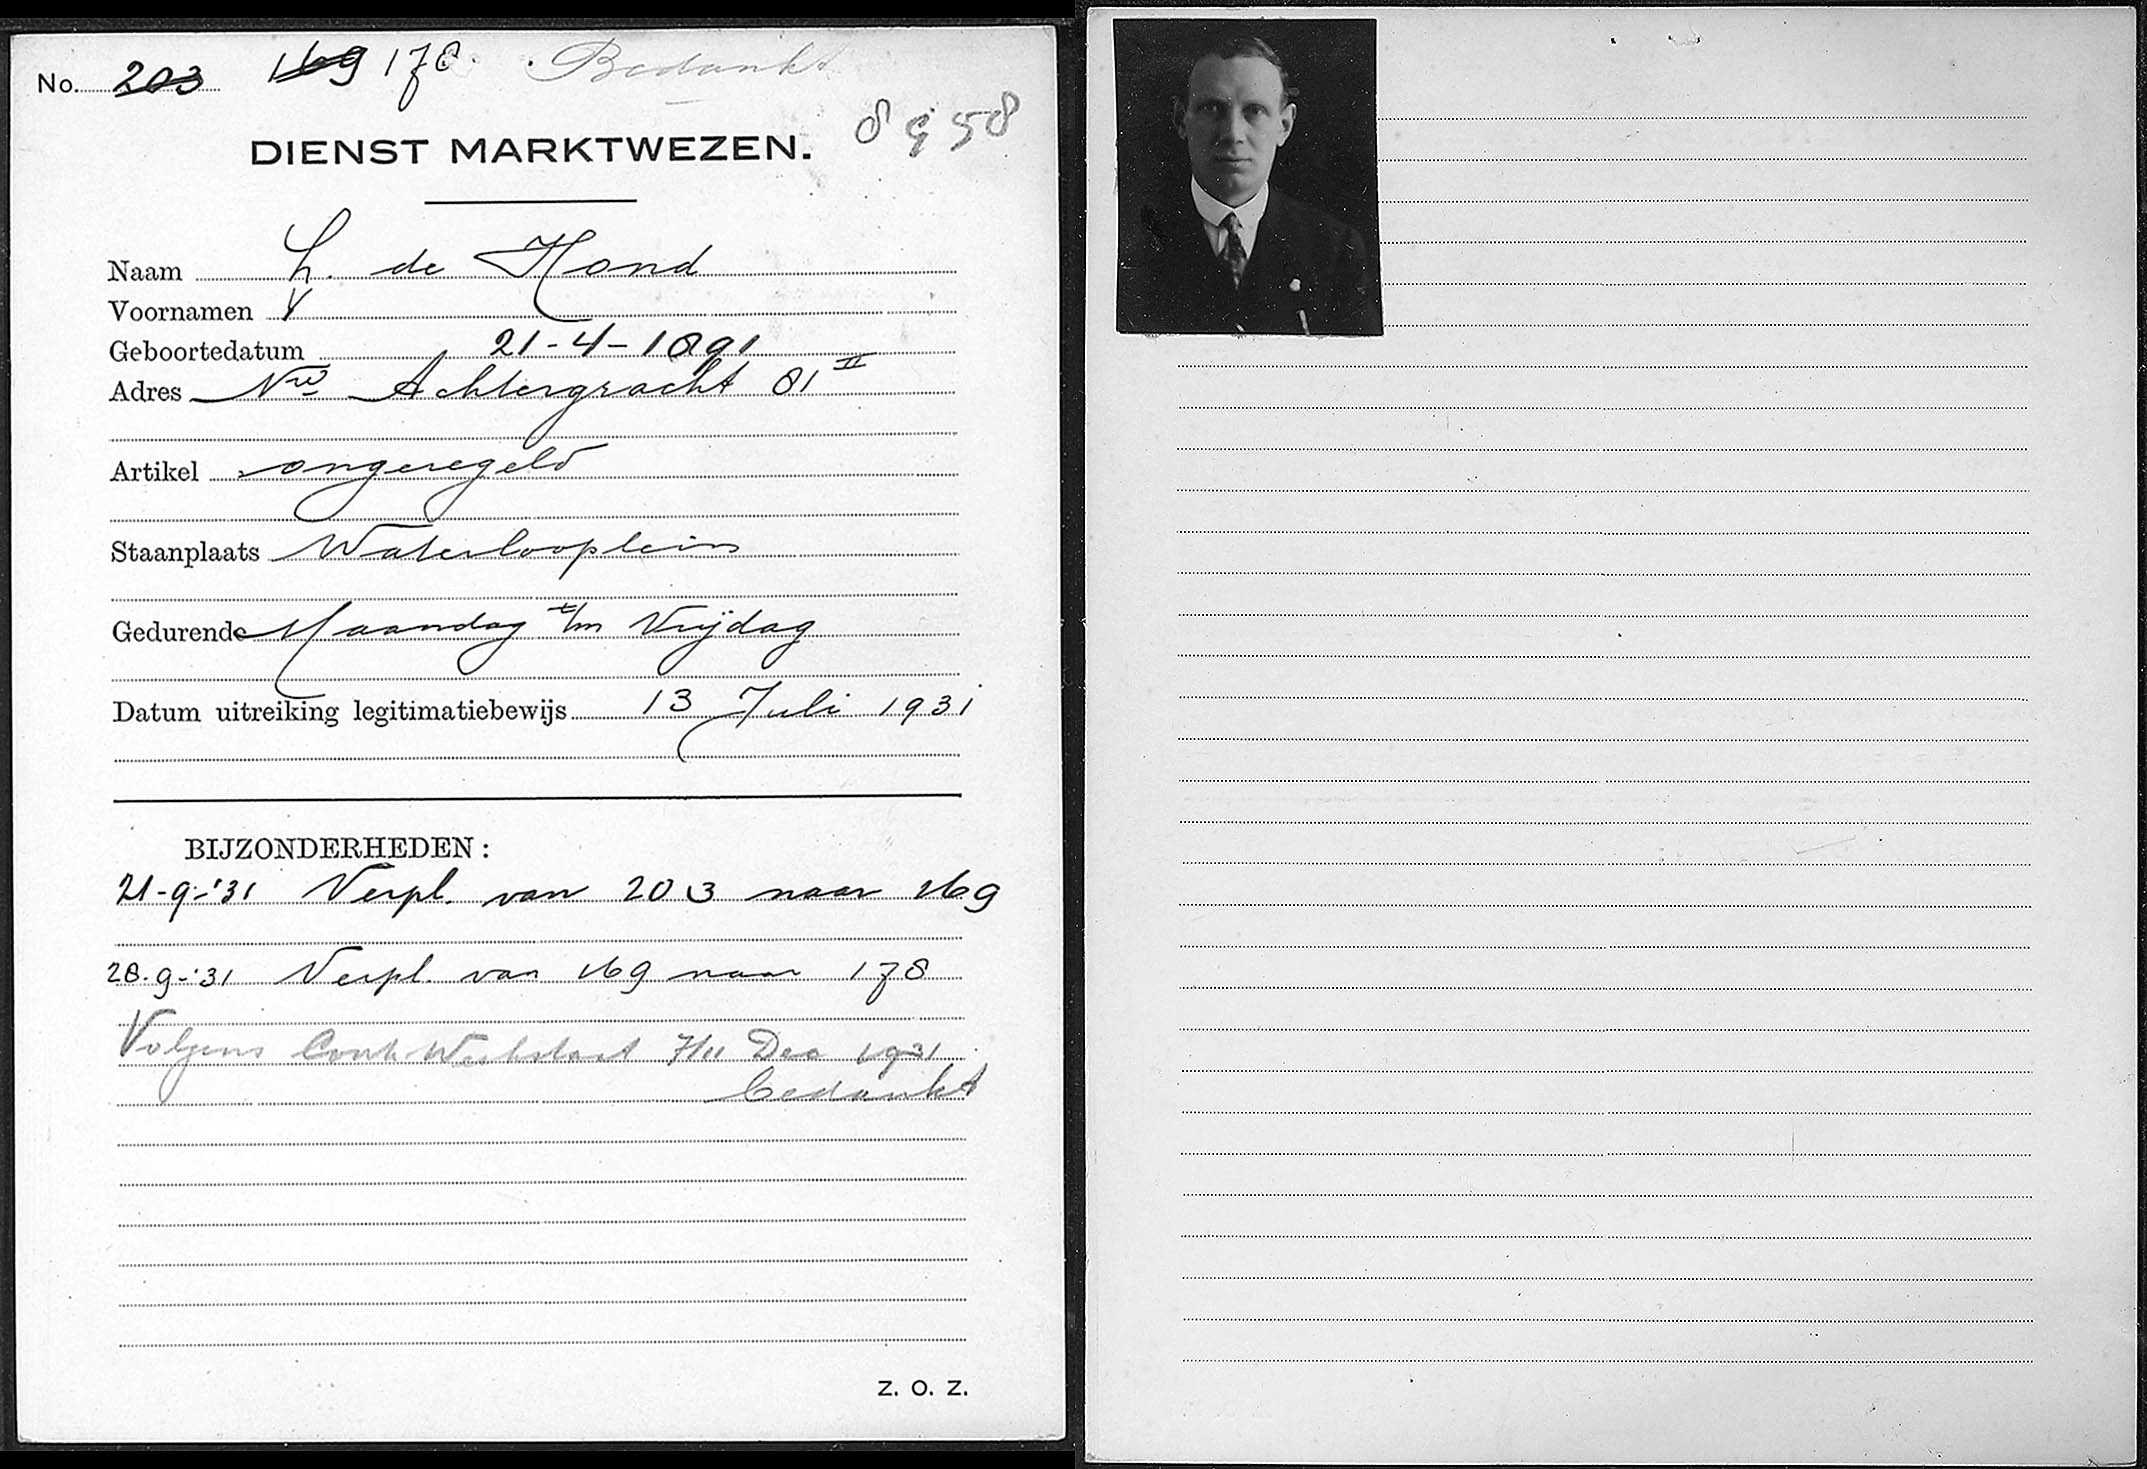 No. 203 169 178. Bedankt
8958
DIENST MARKTWEZEN.
Naam L. de Hond
Voornamen
Geboortedatum 21-4-1891
Adres Nwe Achtergracht 81 II
Artikel ongeregeld
Staanplaats Waterlooplein
Gedurende Maandag t/m Vrijdag
Datum uitreiking legitimatiebewijs 13 Juli 1931
BIJZONDERHEDEN:
21-9-'31 Verpl. van 203 naar 169
28-9-'31 Verpl. van 169 naar 178
Volgens Contr Weekstaat 7/11 Dec 1931
bedankt
Z. O. Z.